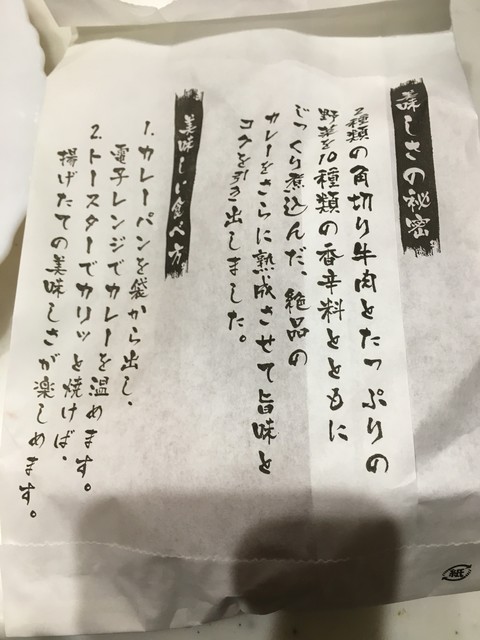 美味しさの秘密
2種類の角切り牛肉とたっぷりの
野菜を10種類の香辛料とともに
じっくり煮込んだ、絶品の
カレーをさらに熟成させて旨味と
コクを引き出しました。
美味しい食べ方
1. カレーパンを袋から出し、
電子レンジでカレーを温めます。
2. トースターでカリッと焼けば、
揚げたての美味しさが楽しめます。
紙